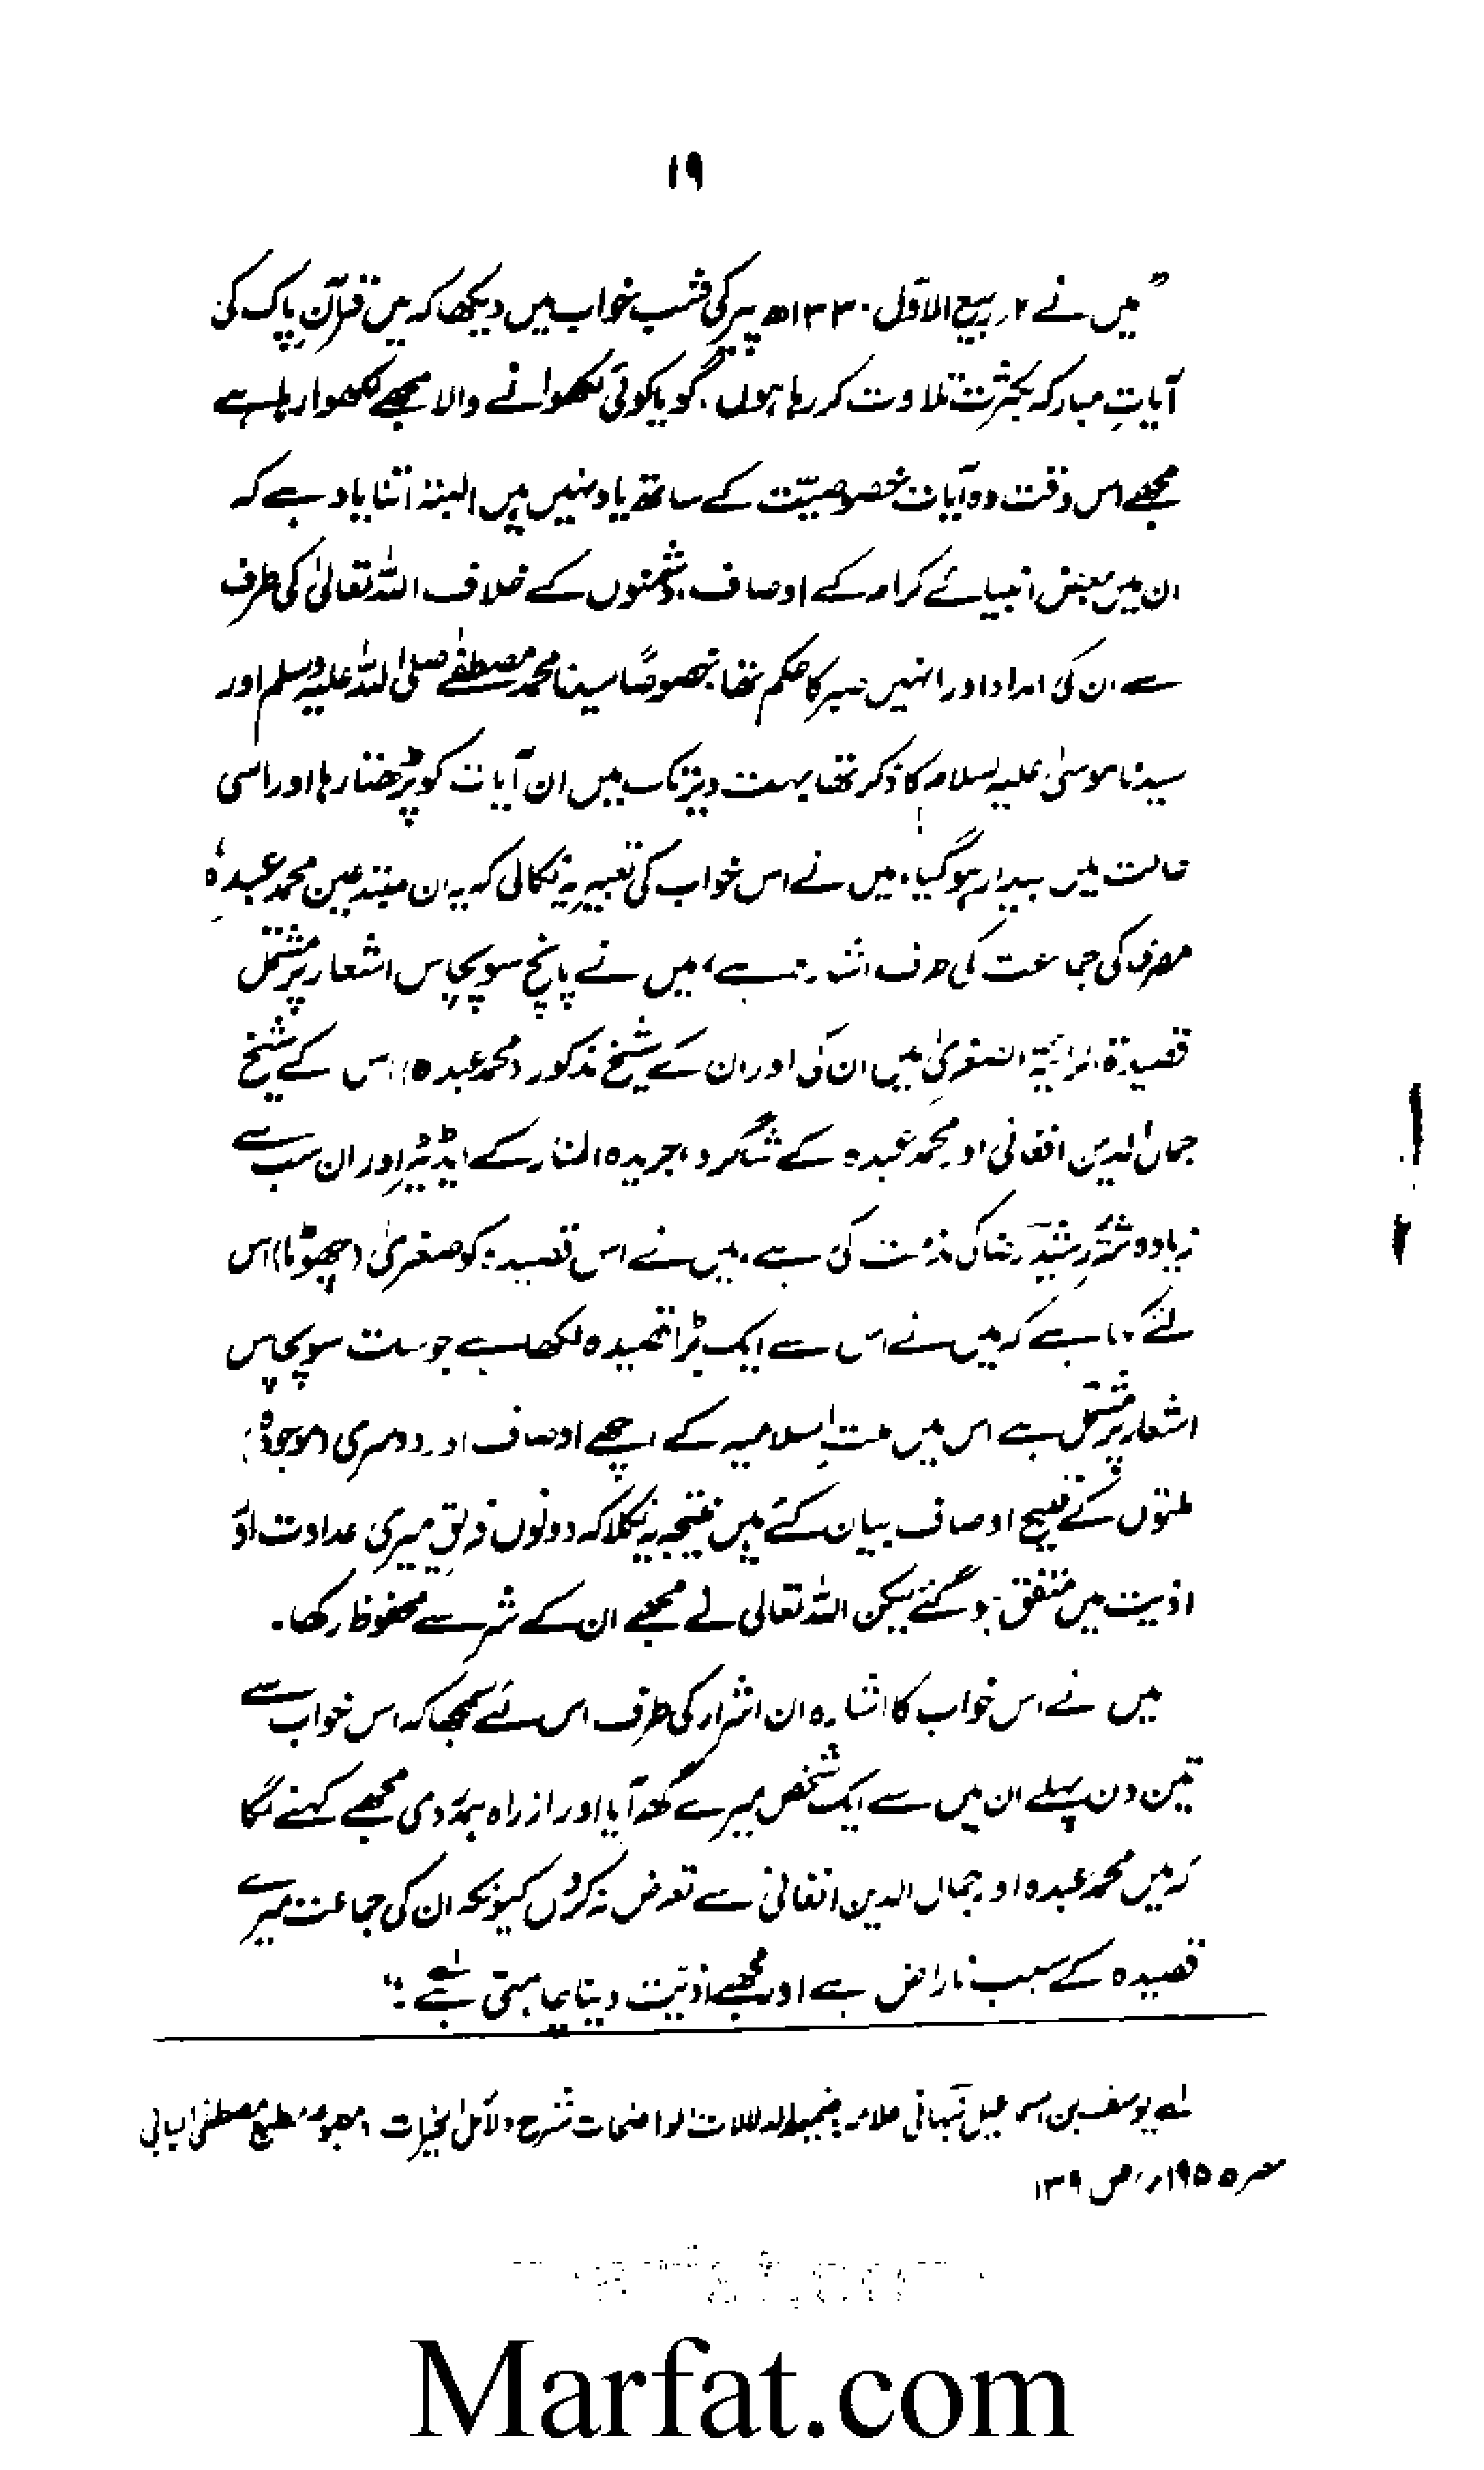 ۱۹
"میں نے ۲ ربیع الاوّل ۱۳۳۰ھ پیر کی شب خواب میں دیکھا کہ میں قرآنِ پاک کی
آیاتِ مبارکہ بکثرت تلاوت کر رہا ہوں، گویا کوئی لکھوانے والا مجھے لکھوا رہا ہے
مجھے اس وقت وہ آیات خصوصیّت کے ساتھ یاد نہیں ہیں البتہ اتنا یاد ہے کہ
ان میں بعض انبیائے کرام کے اوصاف، دشمنوں کے خلاف اللہ تعالیٰ کی طرف
سے ان کی امداد اور انہیں صبر کا حکم تھا خصوصًا سیدنا محمد مصطفٰے صلی اللہ علیہ وسلم اور
سیدنا موسیٰ علیہ السلام کا ذکر تھا بہت دیر تک میں ان آیات کو پڑھتا رہا اور اسی
حالت میں بیدار ہو گیا، میں نے اس خواب کی تعبیر یہ نکالی کہ یہ ان مبتدعین محمد عبدہٗ
مصری کی جماعت کی طرف اشارہ ہے، میں نے پانچ سو پچاس اشعار پر مشتمل
قصیدۃ الرائیۃ الصغریٰ میں ان کی اور ان کے شیخ مذکور (محمد عبدہ) اس کے شیخ
جمال الدین افغانی اور محمد عبدہ کے شاگرد، جریدہ المنار کے ایڈیٹر اور ان سب سے
زیادہ شریر رشید رضا کی مذمت کی ہے، میں نے اس قصیدہ کو صغریٰ (چھوٹا) اس
لئے کہا ہے کہ میں نے اس سے ایک بڑا قصیدہ لکھا ہے جو سات سو پچاس
اشعار پر مشتمل ہے اس میں ملتِ اسلامیہ کے اچھے اوصاف اور دوسری (موجودہ)
ملتوں کے قبیح اوصاف بیان کئے ہیں نتیجہ یہ نکلا کہ دونوں فریق میری عداوت اور
اذیت میں متفق ہو گئے لیکن اللہ تعالی نے مجھے ان کے شر سے محفوظ رکھا۔
میں نے اس خواب کا اشارہ ان اشرار کی طرف اس لئے سمجھا کہ اس خواب سے
تین دن پہلے ان میں سے ایک شخص میرے گھر آیا اور از راہ ہمدردی مجھے کہنے لگا
کہ میں محمد عبدہ اور جمال الدین افغانی سے تعرض نہ کروں کیونکہ ان کی جماعت میرے
قصیدہ کے سبب ناراض ہے اور مجھے اذیّت دینا چاہتی ہے۔"لہ
لہ یوسف بن اسماعیل نبہانی علامہ ضمیمہ الدلالات الواضحات شرح دلائل الخیرات، مطبوعہ مطبع مصطفیٰ البابی
مصر ۱۹۵۵ء، ص ۱۳۹
Marfat.com